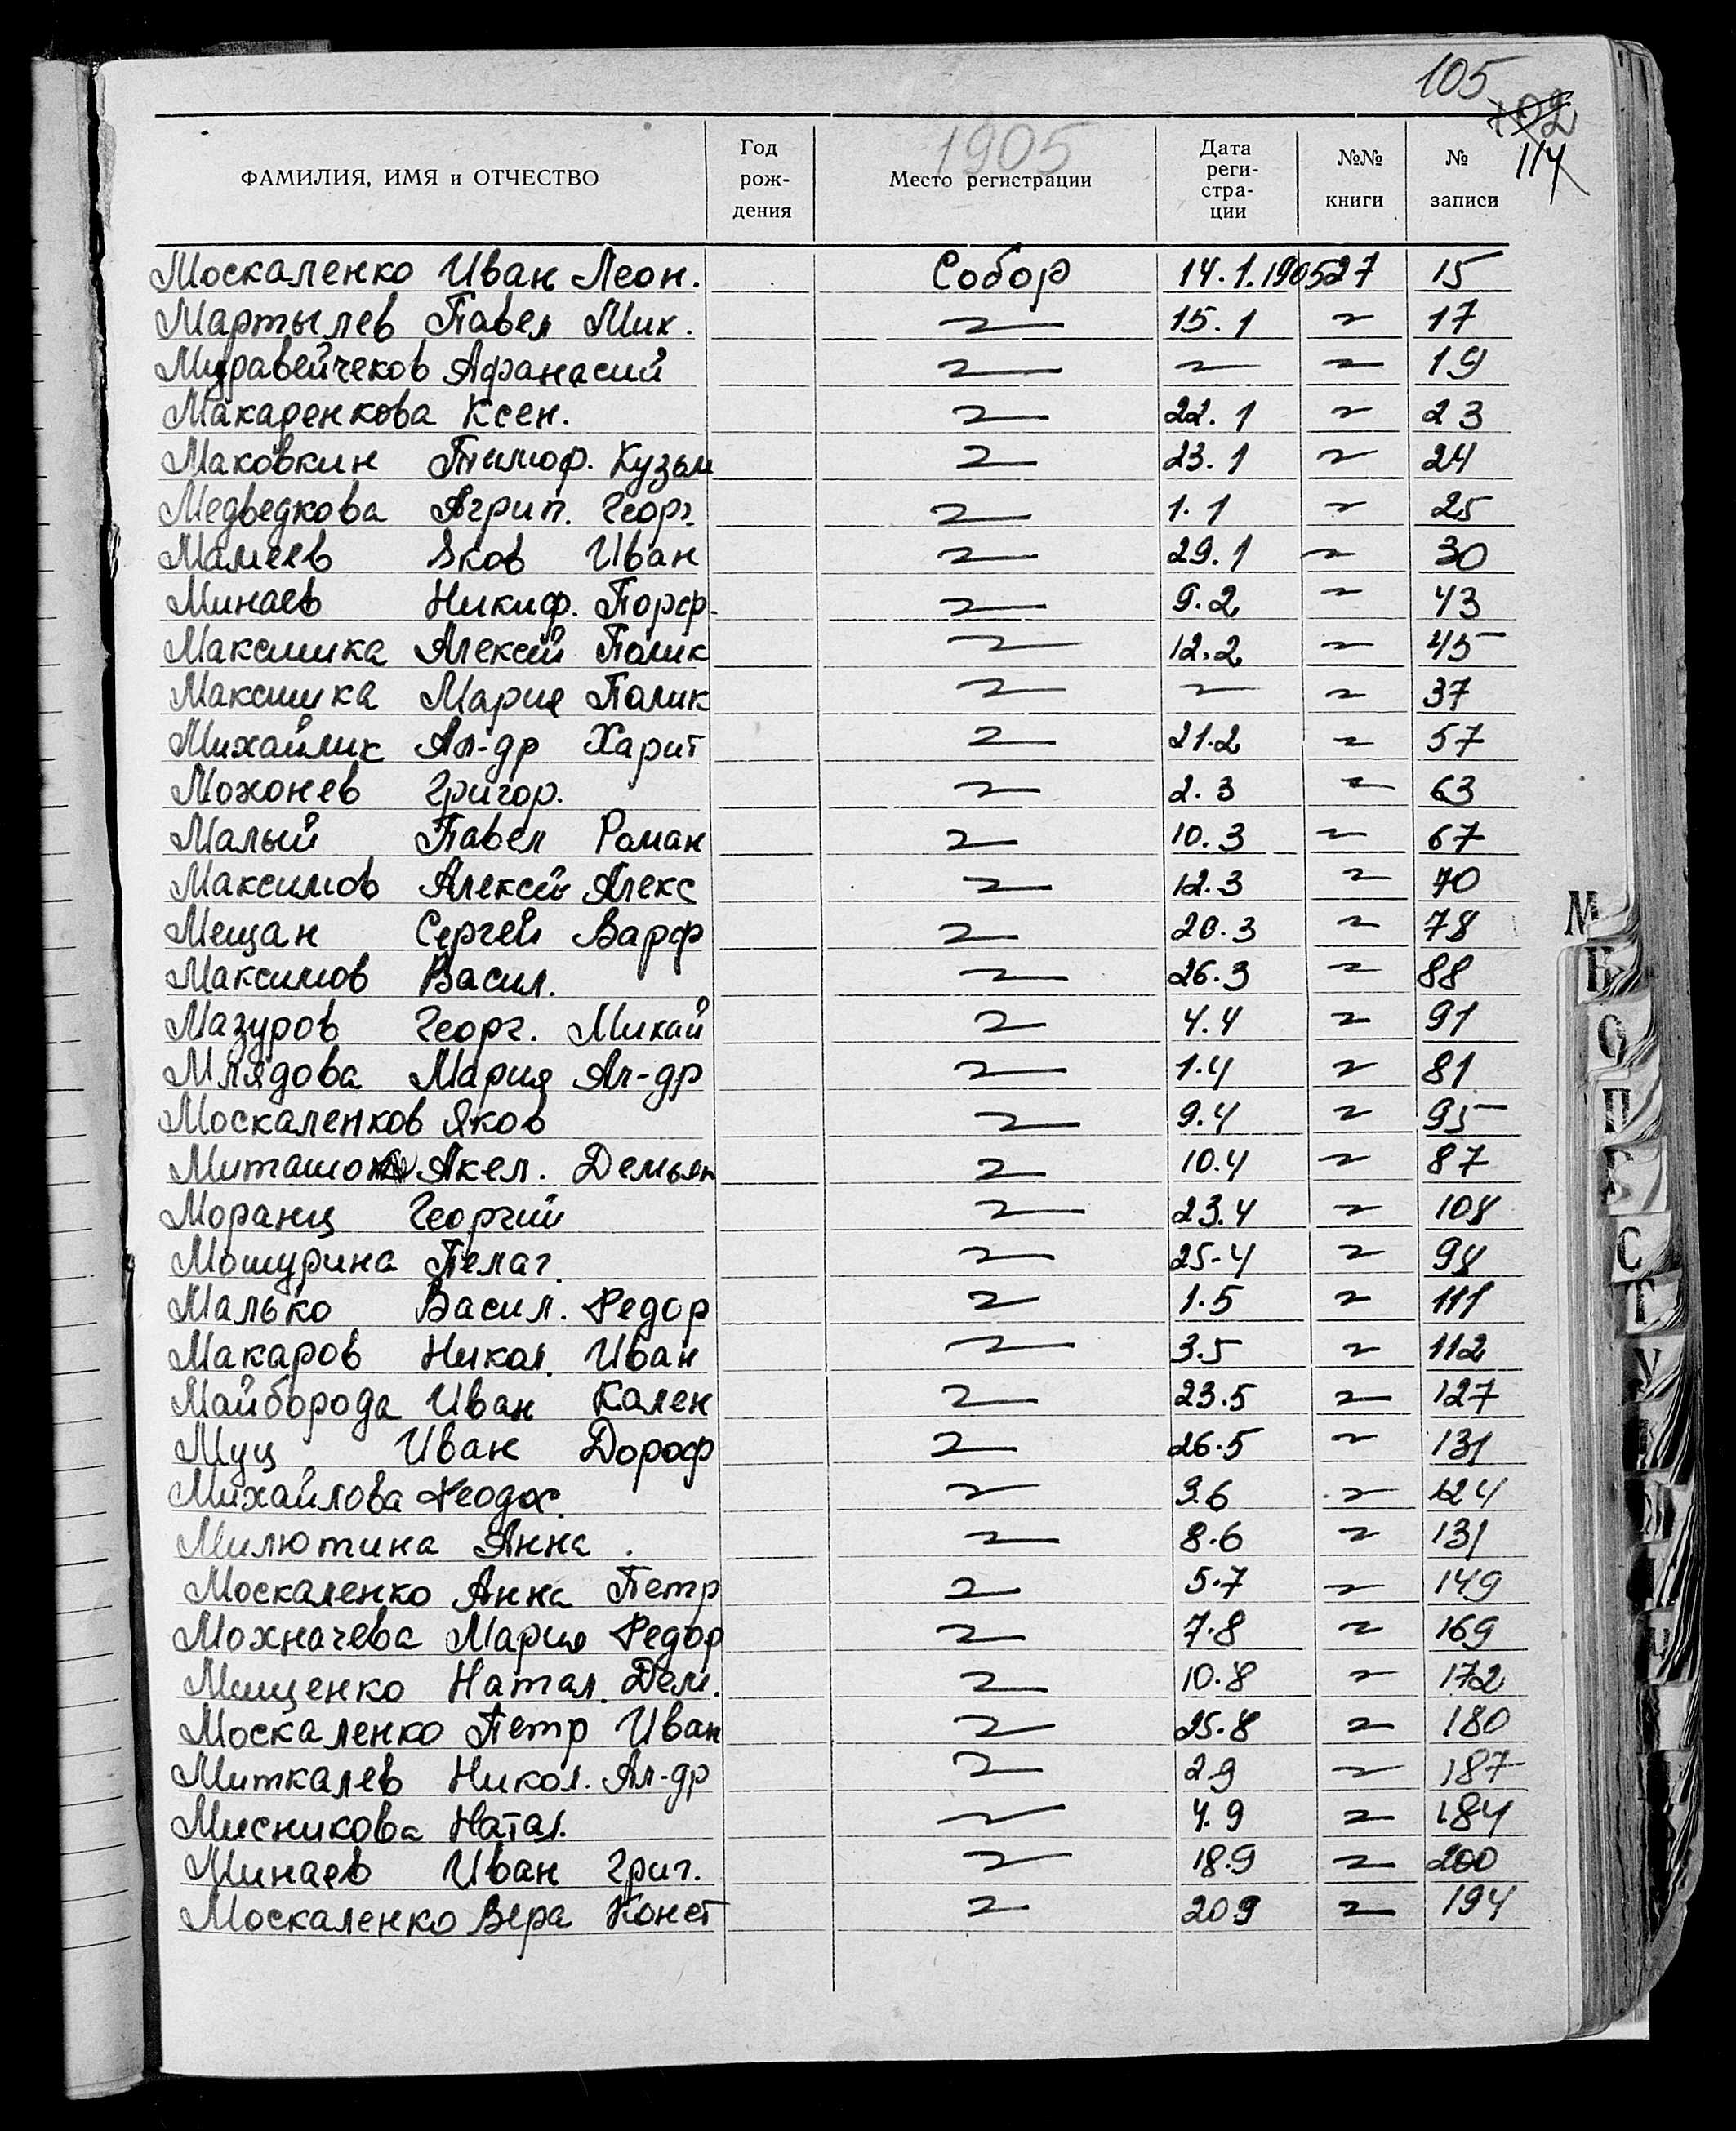 105
102
114
1905
ФАМИЛИЯ, ИМЯ и ОТЧЕСТВО Год рож- дения Место регистрации Дата реги- стра- ции №№ книги № записи
Москаленко Иван Леон. Собор 14.1.1905 27 15
Мартылев Павел Мих. 〃 15.1 〃 17
Муравейчеков Афанасий 〃 〃 〃 19
Макаренкова Ксен. 〃 22.1 〃 23
Маковкин Тимоф. Кузьм 〃 23.1 〃 24
Медведкова Агрип. Георг. 〃 1.1 〃 25
Мамеев Яков Иван 〃 29.1 〃 30
Минаев Никиф. Порф. 〃 9.2 〃 43
Максимка Алексей Полик 〃 12.2 〃 45
Максимка Мария Полик 〃 〃 〃 37
Михайлик Ал-др Харит 〃 21.2 〃 57
Мохонев Григор. 〃 2.3 〃 63
Малый Павел Роман 〃 10.3 〃 67
Максимов Алексей Алекс 〃 12.3 〃 70
Мещан Сергей Варф 〃 20.3 〃 78
Максимов Васил. 〃 26.3 〃 88
Мазуров Георг. Михай 〃 4.4 〃 91
Млядова Мария Ал-др 〃 1.4 〃 81
Москаленков Яков 〃 9.4 〃 95
Акел. Демьян 〃 10.4 〃 87
Моранц Георгий 〃 23.4 〃 108
Мошурина Пелаг. 〃 25.4 〃 98
Малько Васил. Федор 〃 1.5 〃 111
Макаров Никол. Иван 〃 3.5 〃 112
Майборода Иван Кален 〃 23.5 〃 127
Муц Иван Дороф 〃 26.5 〃 131
Михайлова Феодос. 〃 3.6 〃 124
Милютина Анна. 〃 8.6 〃 131
Москаленко Анна Петр 〃 5.7 〃 149
Мохначева Мария Федор 〃 7.8 〃 169
Мищенко Натал. Дем. 〃 10.8 〃 172
Москаленко Петр Иван 〃 25.8 〃 180
Миткалев Никол. Ал-др 〃 2.9 〃 187
Мисникова Натал. 〃 4.9 〃 184
Минаев Иван Григ. 〃 18.9 〃 200
Москаленко Вера Конст 〃 20 9 〃 194
М
О
П
С
Т
У